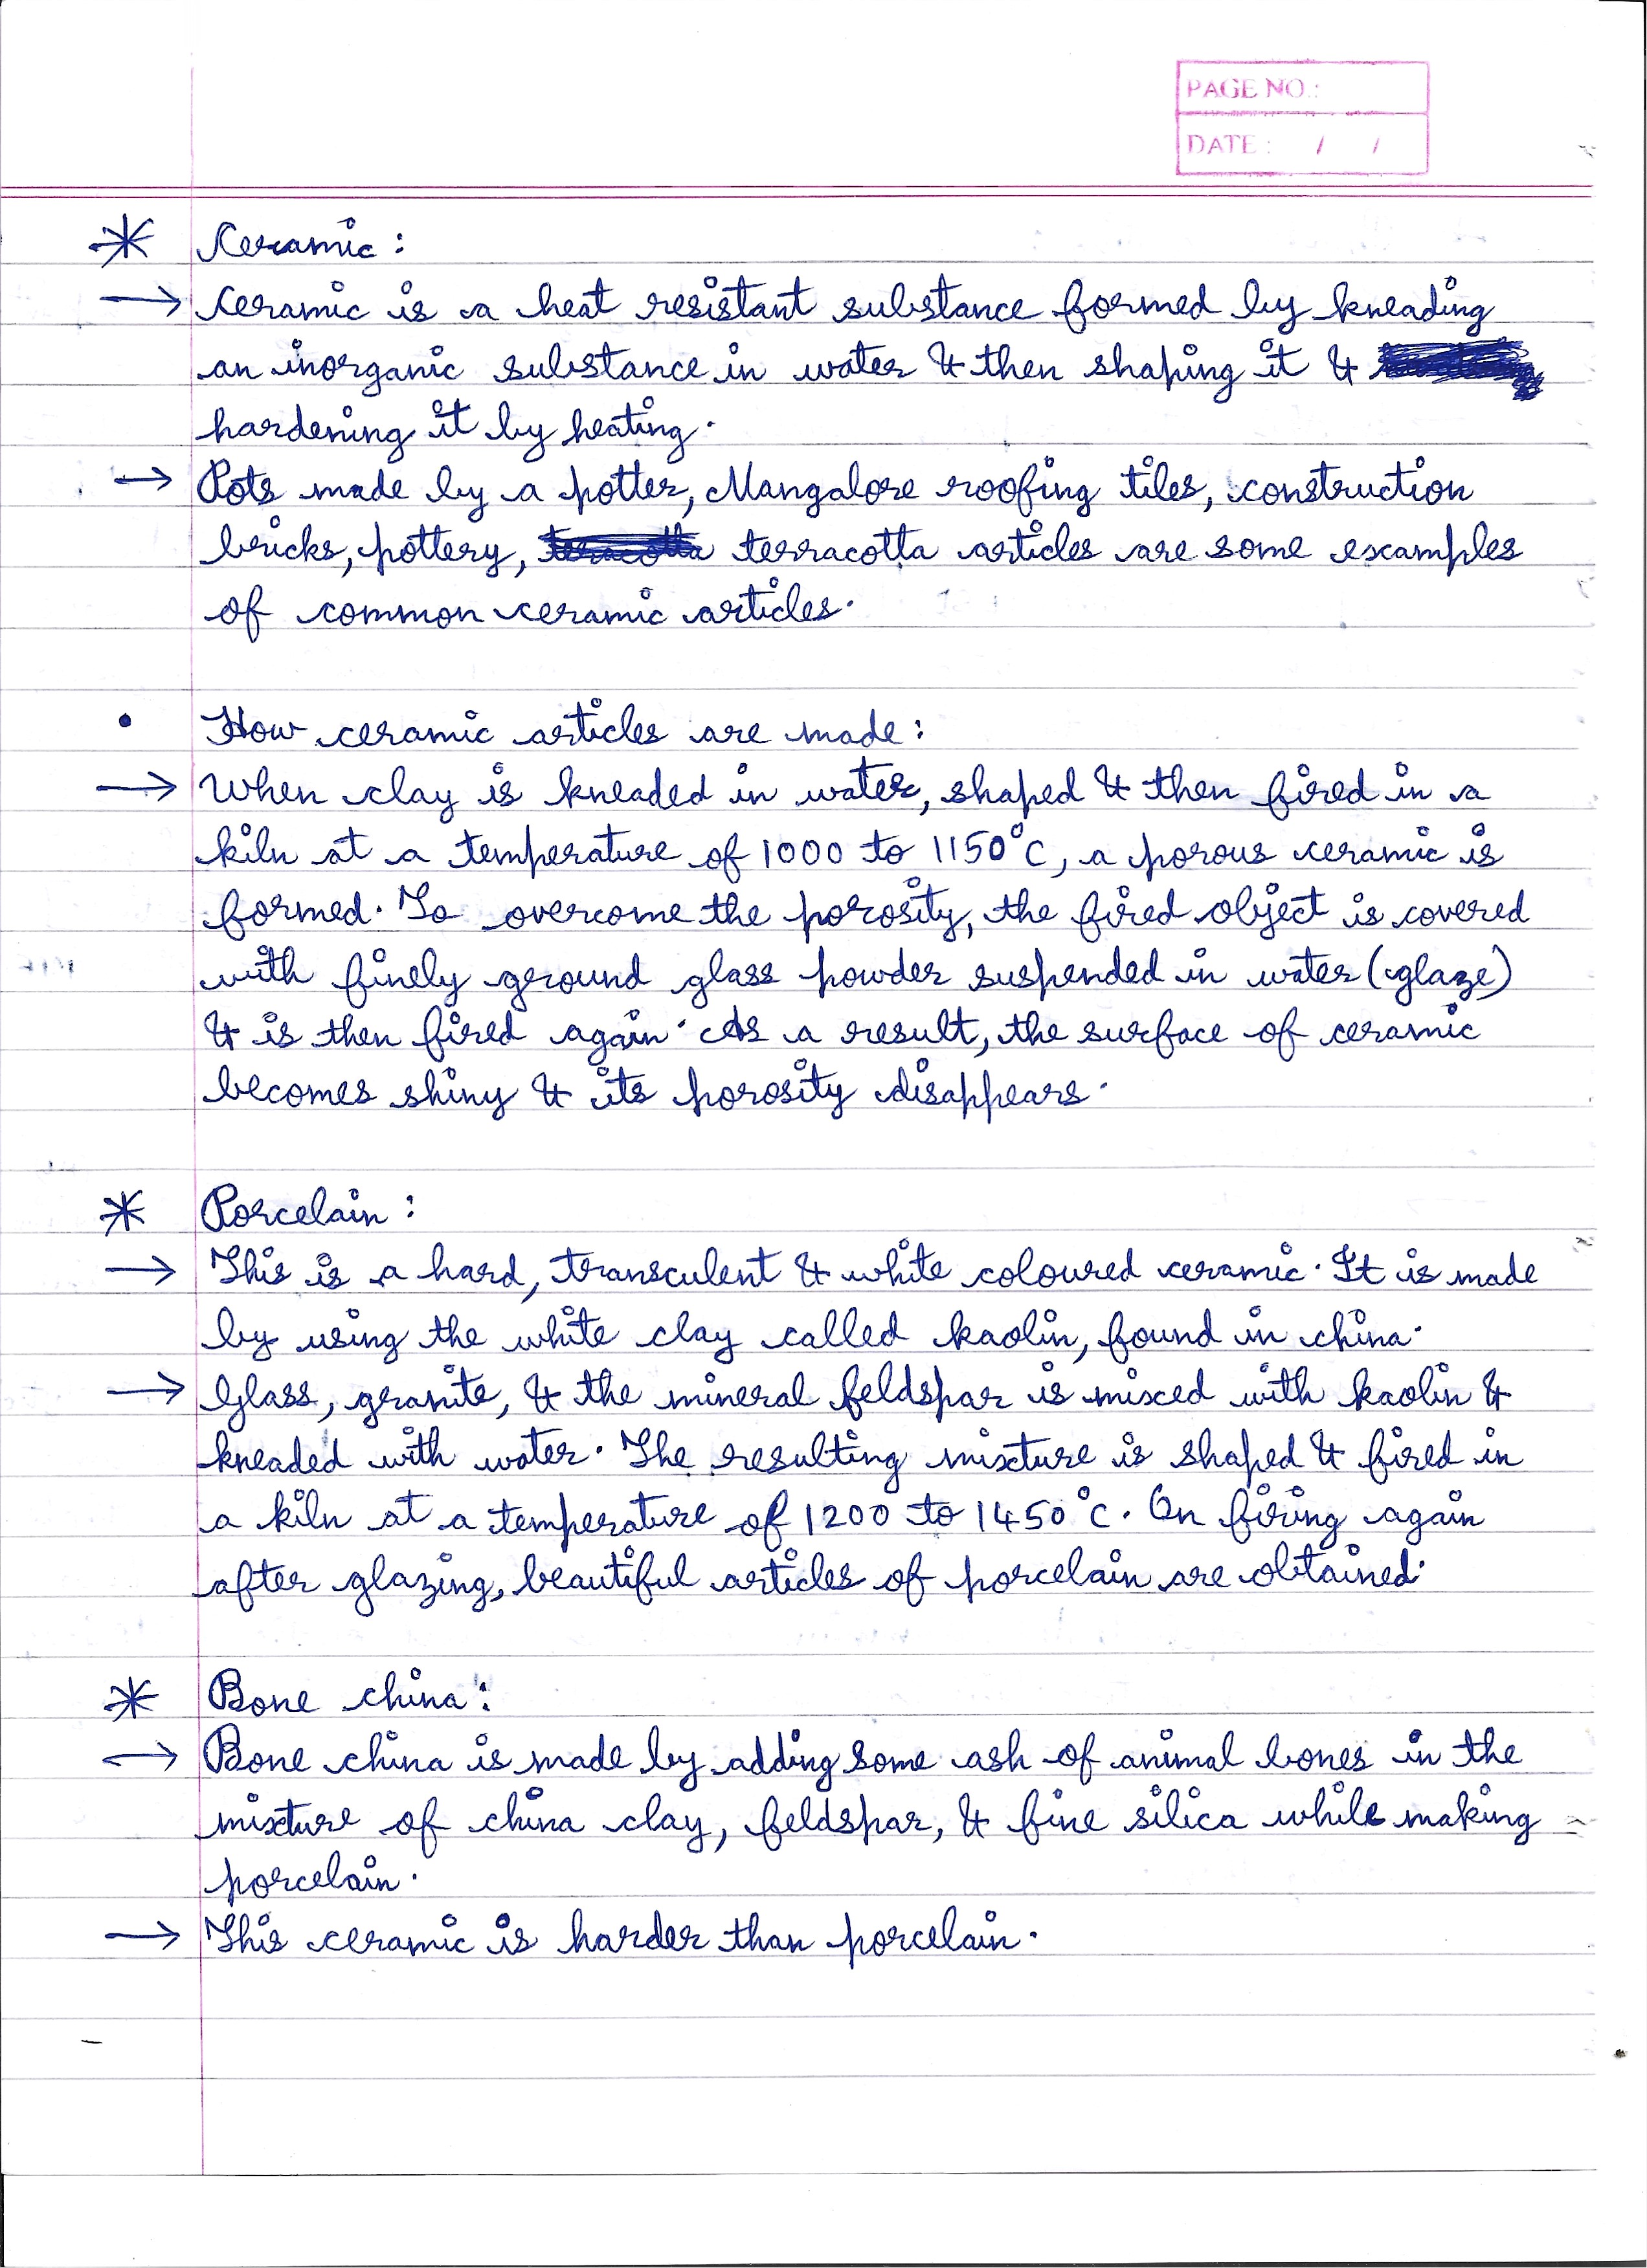 PAGE NO.:
DATE: / /
* Ceramic:
→ Ceramic is a heat resistant substance formed by kneading
an inorganic substance in water & then shaping it &
hardening it by heating.
→ Pots made by a potter, Mangalore roofing tiles, construction
bricks, pottery, teracotta terracotta articles are some examples
of common ceramic articles.
• How ceramic articles are made:
→ When clay is kneaded in water, shaped & then fired in a
kiln at a temperature of 1000 to 1150°C, a porous ceramic is
formed. To overcome the porosity, the fired object is covered
with finely ground glass powder suspended in water (glaze)
& is then fired again. As a result, the surface of ceramic
becomes shiny & its porosity disappears.
* Porcelain:
→ This is a hard, transculent & white coloured ceramic. It is made
by using the white clay called kaolin, found in china.
→ Glass, granite, & the mineral feldspar is mixed with kaolin &
kneaded with water. The resulting mixture is shaped & fired in
a kiln at a temperature of 1200 to 1450°C. On firing again
after glazing, beautiful articles of porcelain are obtained.
* Bone china:
→ Bone china is made by adding some ash of animal bones in the
mixture of china clay, feldspar, & fine silica while making
porcelain.
→ This ceramic is harder than porcelain.